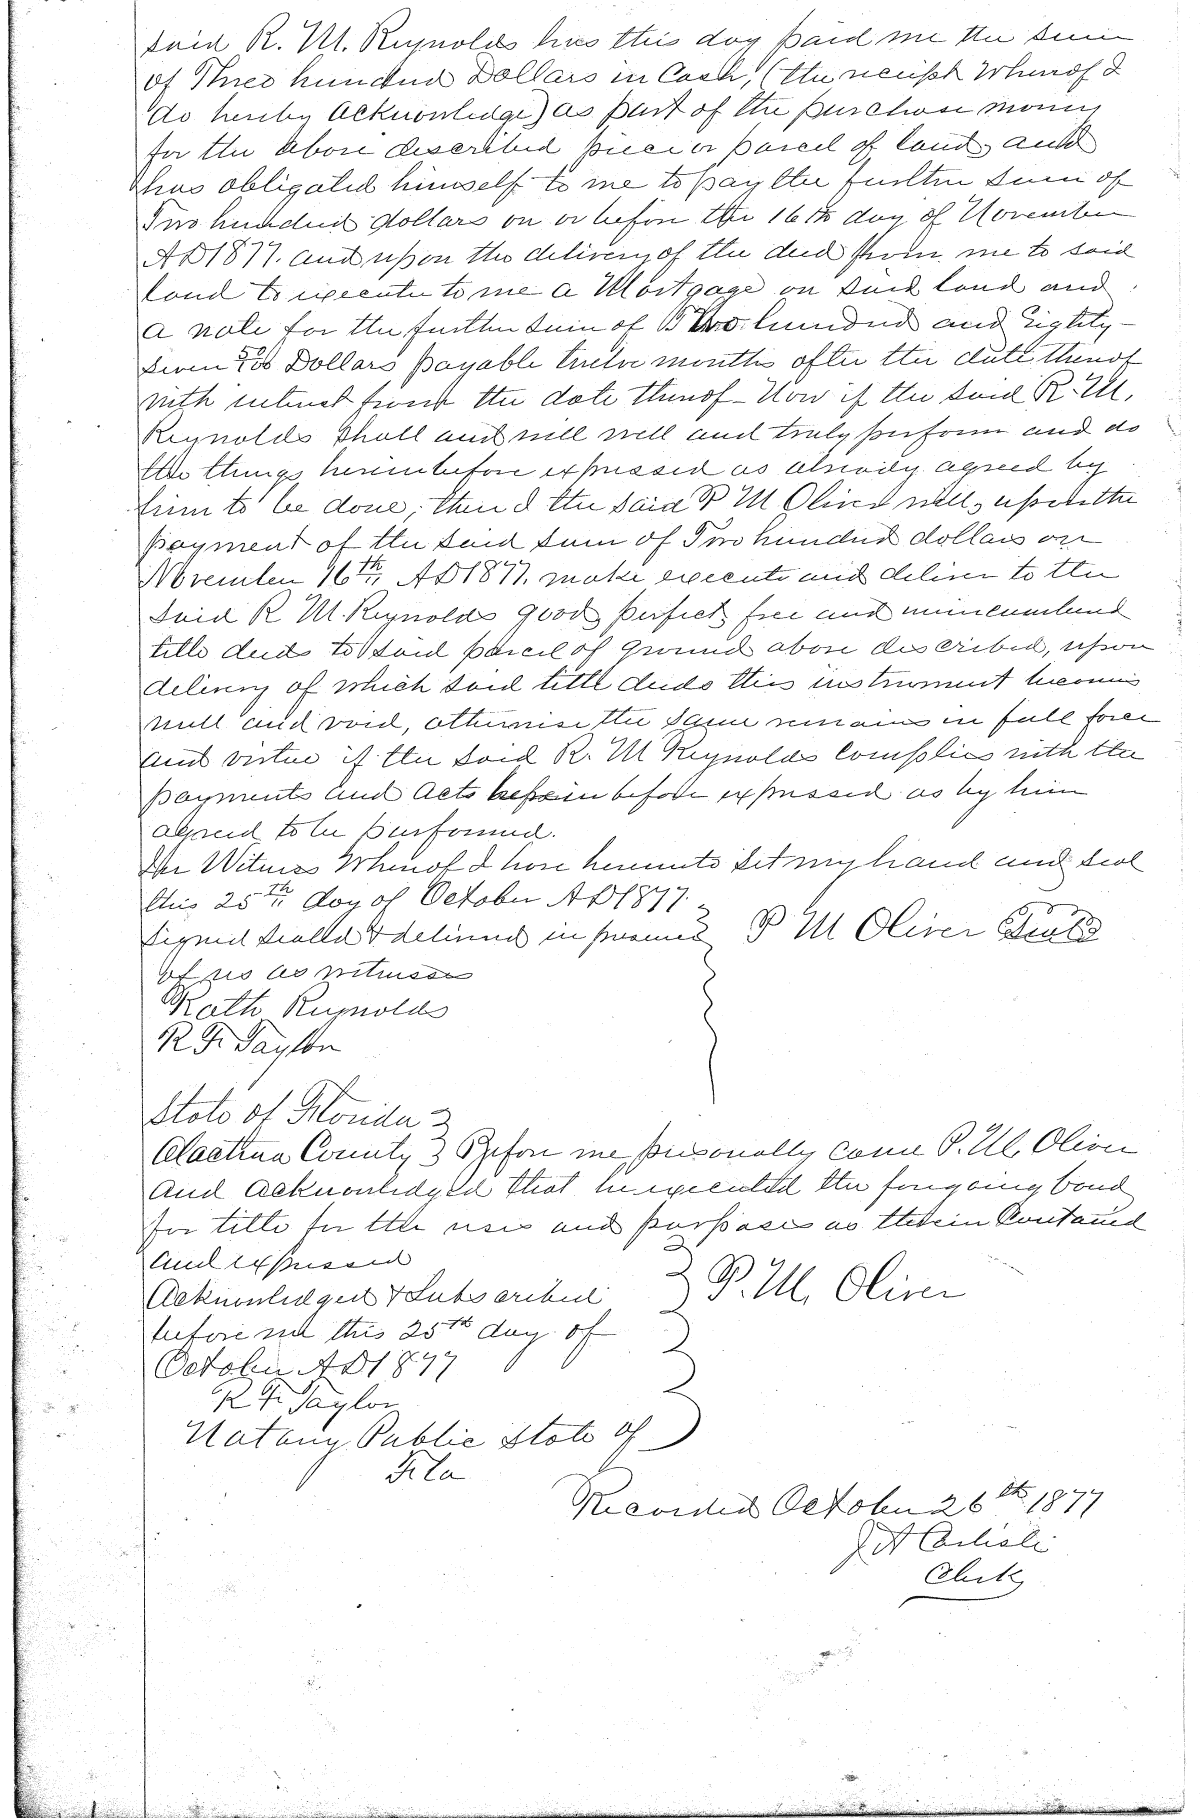 said R. M. Reynolds has this day paid me the sum
of Three hundred Dollars in Cash, (the receipt Whereof I
do hereby acknowledge) as part of the purchase money
for the above described piece or parcel of land, and
has obligated himself to me to pay the further sum of
Two hundred dollars on or before the 16th day of November
AD 1877. and upon the delivery of the deed from me to said
land to execute to me a Mortgage on said land and
a note for the further sum of Two hundred and Eighty-
seven 50/100 Dollars payable twelve months after the date thereof
with interest from the date thereof - Now if the said R. M.
Reynolds shall and will well and truly perform and do
the things hereinbefore expressed as already agreed by
him to be done, then I the said P M Oliver will, upon the
payment of the said sum of Two hundred dollars on
November 16th, AD 1877. make execute and deliver to the
said R M. Reynolds good perfect free and unincumbered
title deeds to said parcel of ground above described, upon
delivery of which said title deeds this instrument becomes
null and void, otherwise the same remains in full force
and virtue if the said R. M Reynolds complies with the
payments and acts hereinbefore expressed as by him
agreed to be performed.
In Witness Whereof I have hereunto set my hand and seal
this 25th day of October AD 1877.
Signed sealed & delivered in presence P M Oliver Seal
of us as witnesses
Rath Reynolds
R F. Taylor
State of Florida
Alachua County Before me personally came P. M. Oliver
and acknowledged that he executed the foregoing bond
for title for the uses and purposes as therein Contained
and expressed
Acknowledged & Subscribed P. M. Oliver
before me this 25th day of
October AD 1877
R F. Taylor
Notary Public State of
Fla
Recorded October 26th 1877
J A Carlisle
Clerk